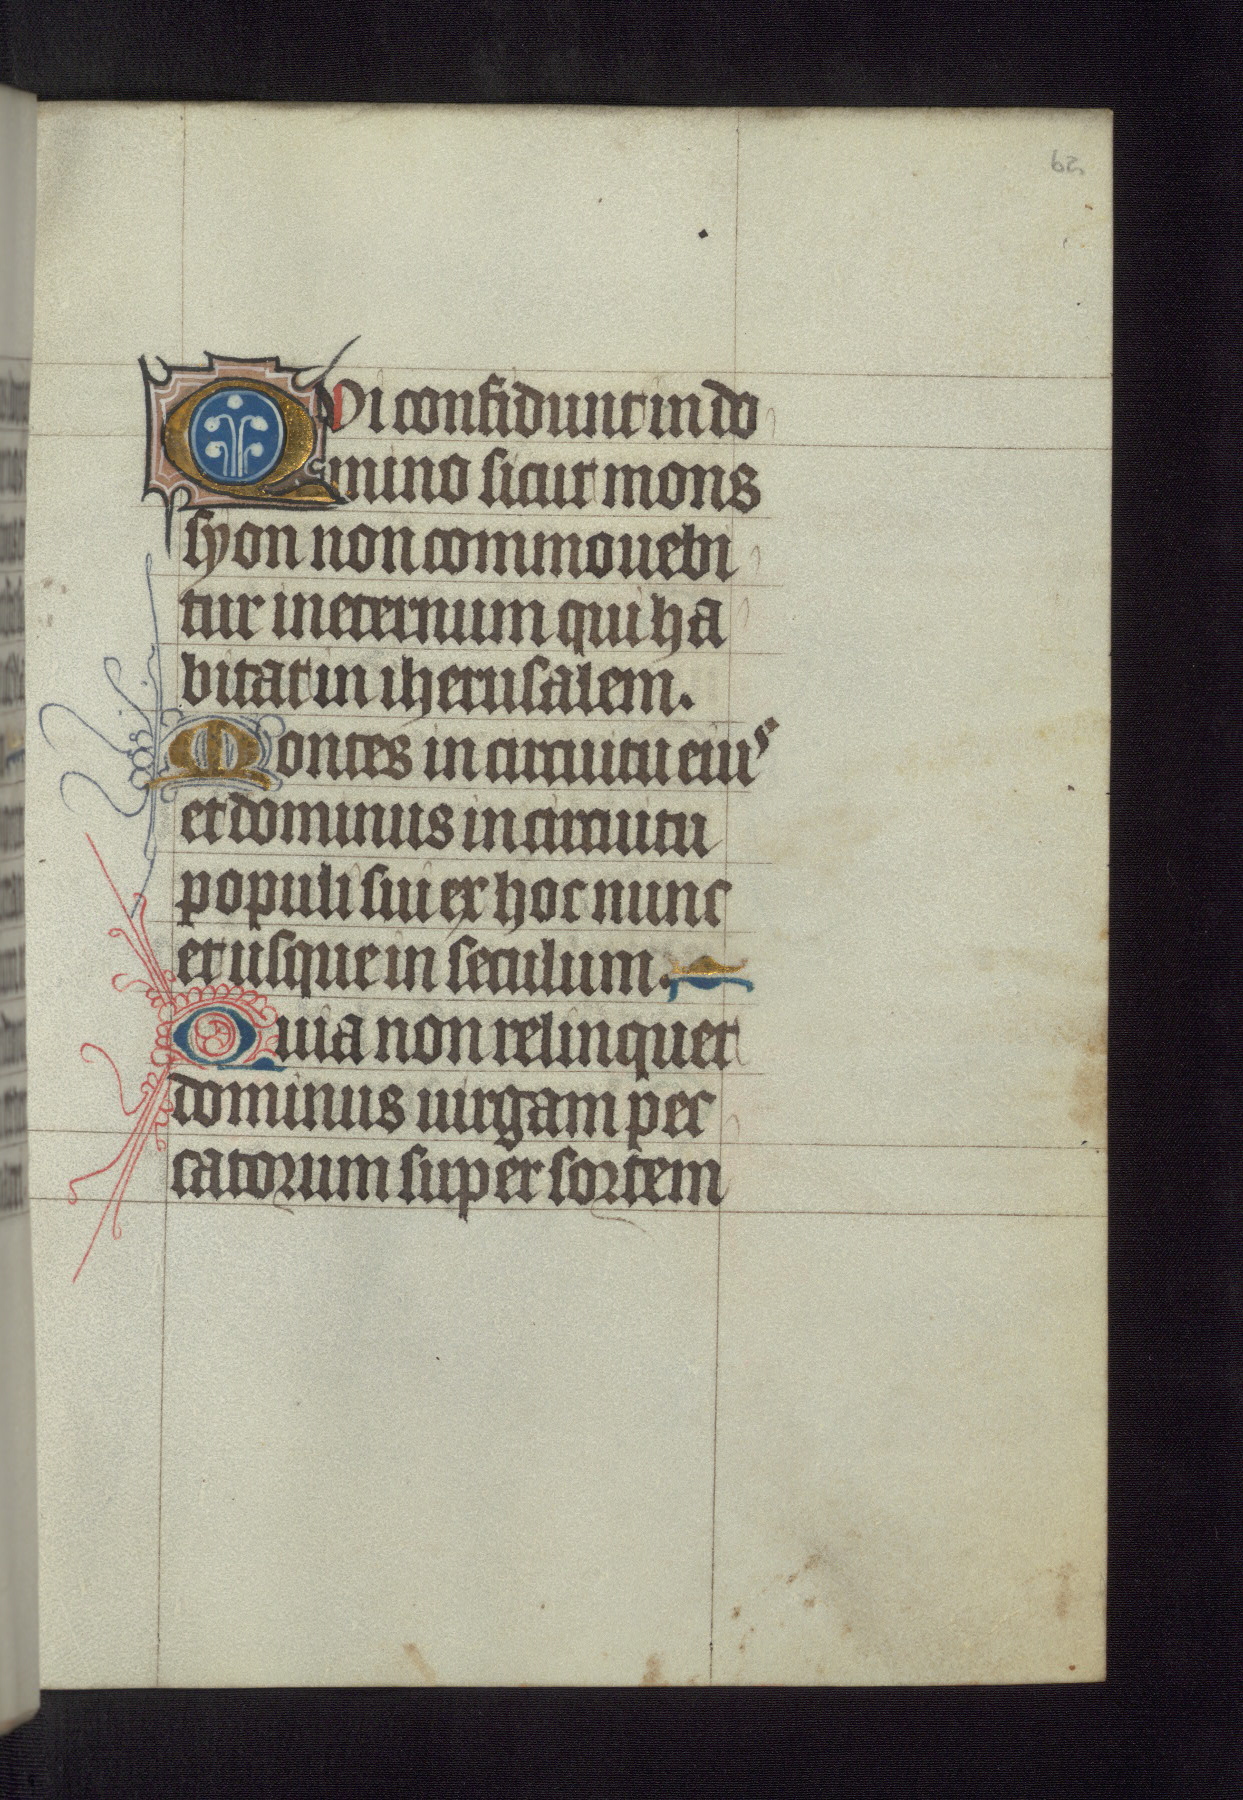 62
QVi confidunt in do
mino sicut mons
syon non commouebi
tur in eternum qui ha
bitat in iherusalem.
Montes in circuitu eius
et dominus in circuitu
populi sui ex hoc nunc
et usque in seculum.
Quia non relinquet
dominus uirgam pec
catorum super sortem